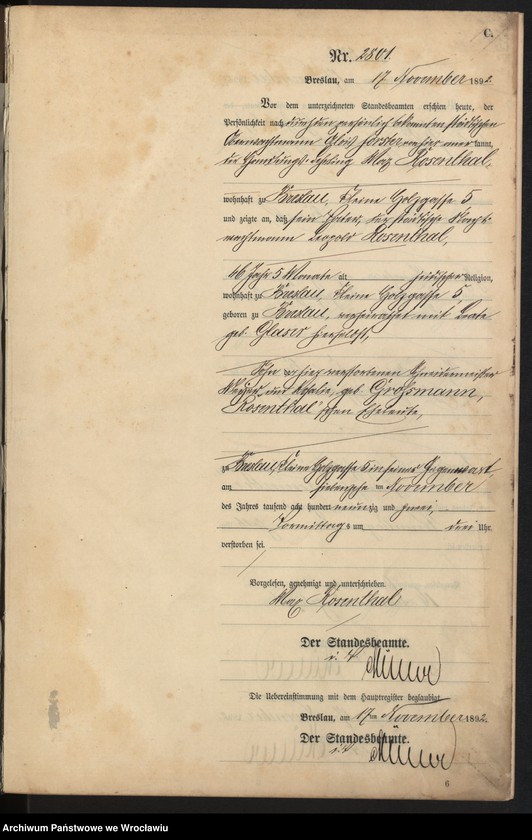 C.
Nr. 2801.
Breslau, am 17 November 1892.
Vor dem unterzeichneten Standesbeamten erschien heute, der
Persönlichkeit nach durch den persönlich bekannten städtischen
kannt,
der Handlungs-Lehrling Max Rosenthal,
wohnhaft zu Breslau, Kleine Holzgasse 5
und zeigte an, daß sein Vater, der städtische
wachtmann Leopold Rosenthal,
46 Jahr 5 Monate alt jüdischer Religion,
wohnhaft zu Breslau, Kleine Holzgasse 5,
geboren zu Breslau, verheirathet mit Beate
geb. Glaser hierselbst,
Sohn der hier verstorbenen
Meyer und Rosalie, geb. Großmann,
Rosenthal'schen Eheleute,
zu Breslau, Kleine Holzgasse 5 in seiner Gegenwart
am siebenzehnten November
des Jahres tausend acht hundert neunzig und zwei,
Vormittags um drei Uhr
verstorben sei.
Vorgelesen, genehmigt und unterschrieben
Max Rosenthal
Der Standesbeamte.
i. V.
Die Uebereinstimmung mit dem Hauptregister beglaubigt
Breslau, am 17ten November 1892.
Der Standesbeamte.
i. V.
6
Archiwum Państwowe we Wrocławiu